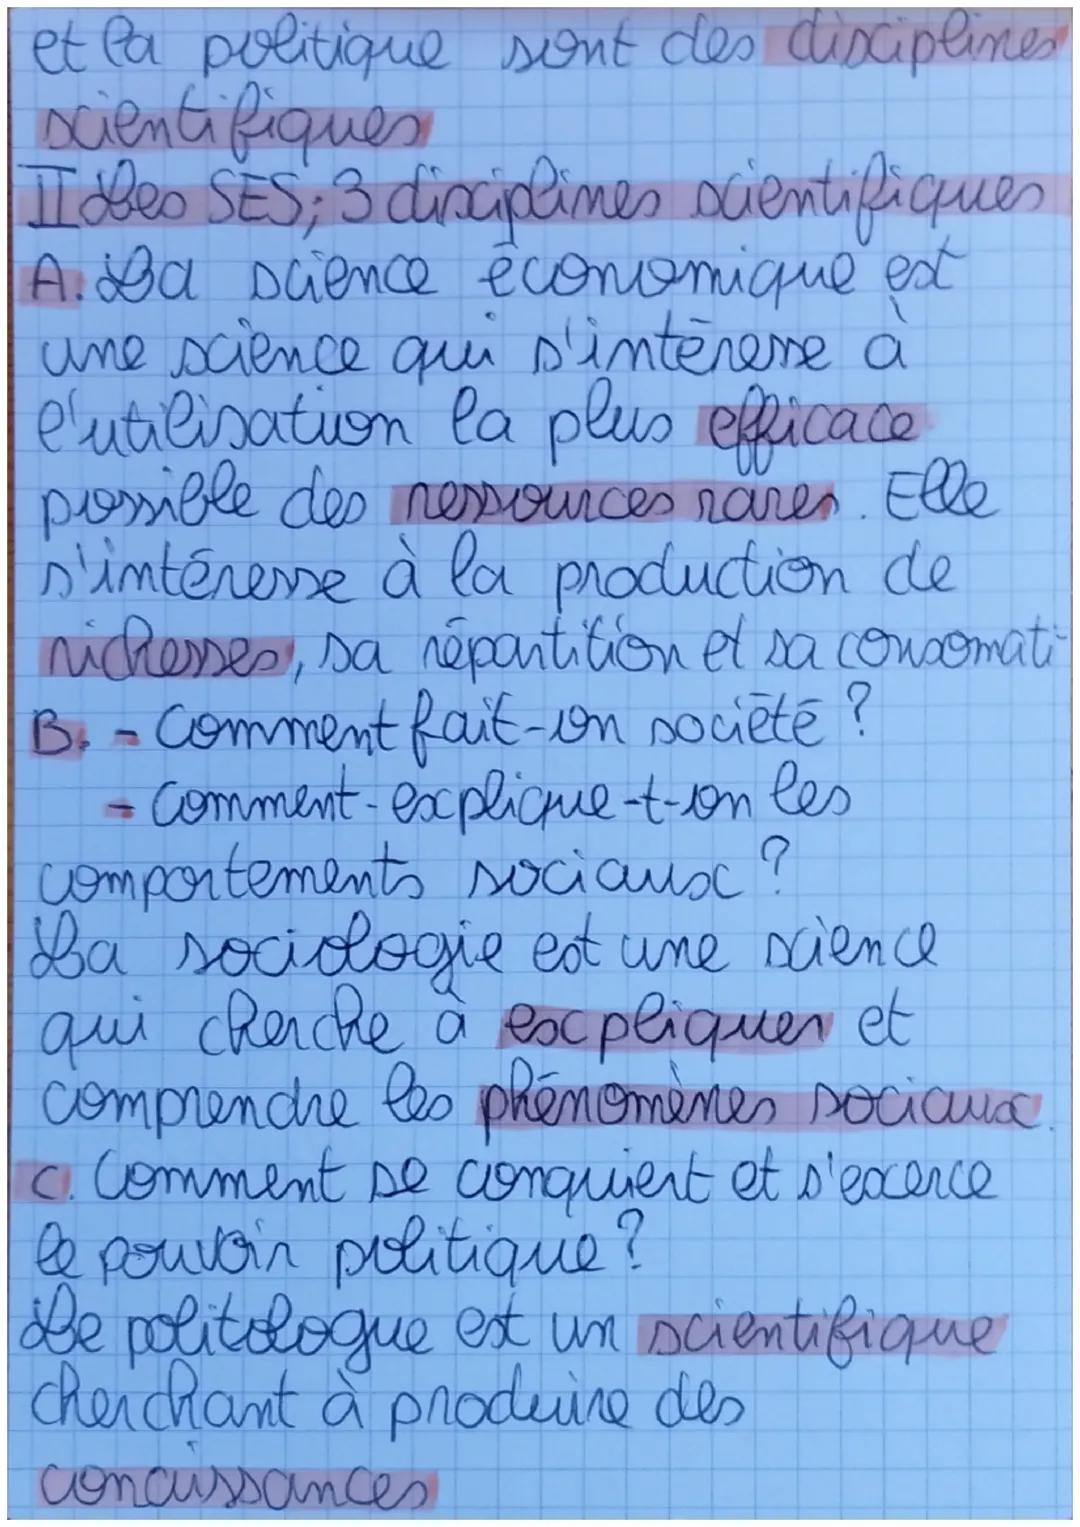 et la politique sont des disciplines
scientifiques
II Les SES; 3 disciplines scientifiques
A. La science économique est
une science qui s'intéresse à
l'utilisation la plus efficace
possible des ressources rares. Elle
s'intéresse à la production de
richesses, sa répartition et sa consomati-
B. - Comment fait-on société ?
- Comment-explique-t-on les
comportements sociaux ?
La sociologie est une science
qui cherche à expliquer et
comprendre les phénomènes sociaux.
C. Comment se conquiert et s'exerce
le pouvoir politique ?
Le politologue est un scientifique
cherchant à produire des
conaissances